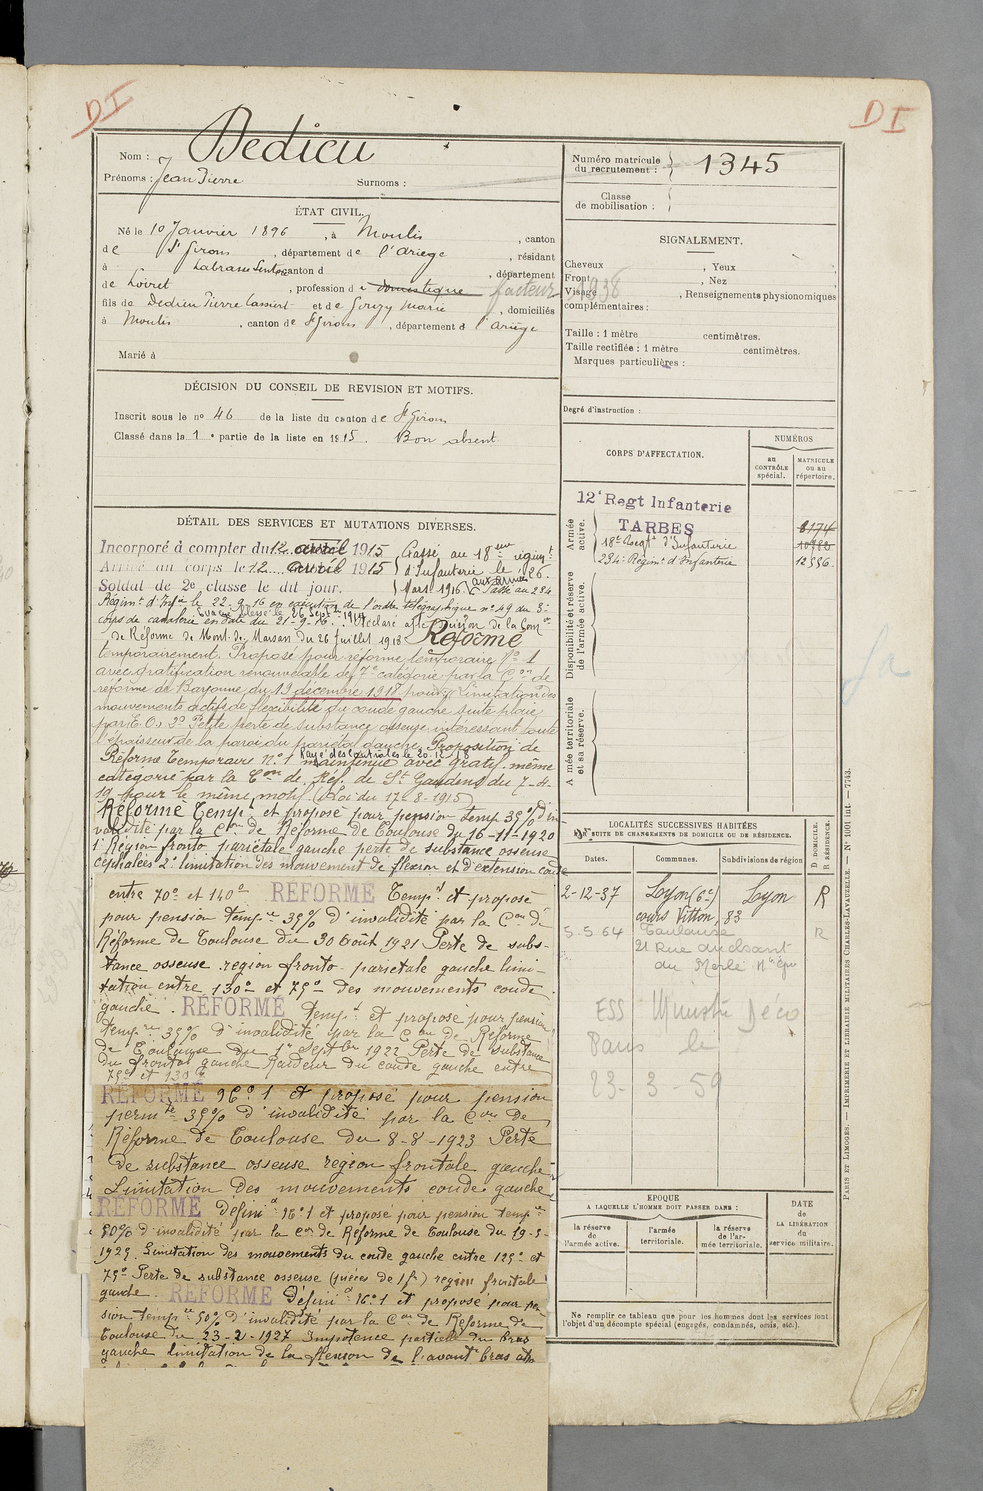 DI
DI
Nom : Dedieu
Prénoms : Jean Pierre
Surnoms :
Numéro matricule du recrutement : 1345
Classe de mobilisation :
ÉTAT CIVIL.
Né le 10 Janvier 1896, à Moulis, canton
de St Girons, département de l'Ariège, résidant
à Labrasse, canton d , département
de Loiret, profession de domestique facteur
fils de Dedieu Pierre Casimir et de Marie, domiciliés
à Moulis, canton de St Girons, département d l'Ariège
Marié à
SIGNALEMENT.
Cheveux , Yeux ,
Front , Nez ,
Visage , Renseignements physionomiques
complémentaires :
1938
Taille : 1 mètre centimètres.
Taille rectifiée : 1 mètre centimètres.
Marques particulières :
Degré d'instruction :
DÉCISION DU CONSEIL DE REVISION ET MOTIFS.
Inscrit sous le no 46 de la liste du canton de St Girons
Classé dans la 1e partie de la liste en 1915. Bon absent
DÉTAIL DES SERVICES ET MUTATIONS DIVERSES.
Incorporé à compter du 12 avril 1915
Arrivé au corps le 12 avril 1915
Soldat de 2e classe le dit jour.
Passé au 18eme régimt
d'Infanterie le 26
Mars 1916 aux armées Passé au 234
Régimt d'Infie le 22-9-16 en exécution de l'ordre télégraphique no 49 du 3e
corps de cavalerie en date du 21-9-16.
Évacué blessé le 26 Septbre
de Réforme de Mont-de-Marsan du 26 Juillet 1918 Réformé
temporairement. Proposé pour réforme temporaire No 1
avec gratification renouvelable de 7e catégorie par la Con de
réforme de Bayonne du 13 décembre 1918 pour : Limitation des
mouvements actifs de flexibilité du coude gauche suite plaie
par E.O. 2o Petite perte de substance osseuse intéressant toute
l'épaisseur de la paroi du pariétal gauche. Proposition de
Rayé des contrôles le 20-12-18
Réforme Temporaire No 1 maintenue avec gratif. même
catégorie par la Con de Réf. de St Gaudens du 7-4-
19 pour le même motif (Loi du 17-8-1915)
Réformé Temp. et proposé pour pension temp 35% d'in
validité par la Con de Réforme de Toulouse du 16-11-1920
1o Région fronto pariétale gauche perte de substance osseuse
céphalées 2o limitation des mouvement de flexion et d'extension coude
entre 70o et 140o REFORMÉ Tempt et proposé
pour pension tempre 35% d'invalidité par la Con de
Réforme de Toulouse du 30 Août 1921 Perte de subs-
tance osseuse région fronto-pariétale gauche limi-
tation entre 130o et 75o des mouvements coude
gauche. REFORMÉ tempt et proposé pour pension
tempre 35% d'invalidité par la Con de Réforme
de Toulouse du 1er Septbre 1922 Perte de substance
du frontal gauche Raideur du coude gauche entre
75o et 130o
REFORMÉ No 1 et proposé pour pension
permte 35% d'invalidité par la Con de
Réforme de Toulouse du 8-8-1923 Perte
de substance osseuse région frontale gauche
Limitation des mouvements coude gauche
REFORMÉ définit No 1 et proposé pour pension tempre
50% d'invalidité par la Con de Réforme de Toulouse du 19-5-
1925. Limitation des mouvements du coude gauche entre 125o et
75o Perte de substance osseuse (pièces de 1f) région frontale
gauche. REFORMÉ définit No 1 et proposé pour pen
sion tempre 50% d'invalidité par la Con de Réforme de
Toulouse du 23-2-1927 Impotence partielle du bras
gauche limitation de la flexion de l'avant bras
CORPS D'AFFECTATION.
NUMÉROS
au CONTRÔLE spécial.
MATRICULE ou au répertoire.
Armée active.
12e Regt Infanterie
TARBES
8174
18e Regt d'Infanterie
234e Régimt d'Infanterie 12556
Disponibilité et réserve de l'armée active.
Armée territoriale et sa réserve.
LOCALITÉS SUCCESSIVES HABITÉES
PAR SUITE DE CHANGEMENTS DE DOMICILE OU DE RÉSIDENCE.
Dates. Communes. Subdivisions de région
D. DOMICILE. R. RÉSIDENCE.
2-12-37 Lyon (6e) Lyon R
cours Vitton, 83
5.5.64 Toulouse R
21 Rue du chant
du Merle
ESS Ministre Déco
Paris le
23-3-59
EPOQUE
A LAQUELLE L'HOMME DOIT PASSER DANS :
la réserve de l'armée active.
l'armée territoriale.
la réserve de l'armée territoriale.
DATE de LA LIBÉRATION du service militaire.
Ne remplir ce tableau que pour les hommes dont les services font
l'objet d'un décompte spécial (engagés, condamnés, omis, etc.).
PARIS ET LIMOGES. — IMPRIMERIE ET LIBRAIRIE MILITAIRES CHARLES-LAVAUZELLE. — No 1001 int. — 7743.